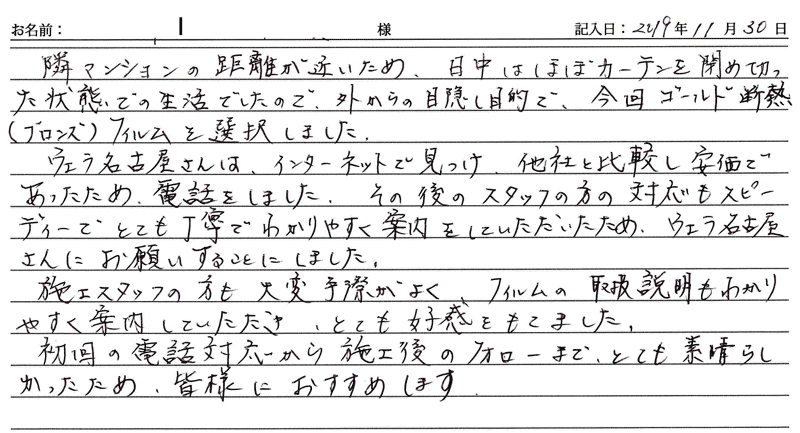 お名前： 様 記入日：2019年11月30日
隣マンションの距離が近いため、日中はほぼカーテンを閉め切っ
た状態での生活でしたので、外からの目隠し目的で、今回ゴールド断熱
(ブロンズ)フィルムを選択しました。
ウェラ名古屋さんは、インターネットで見つけ、他社と比較し安価で
あったため、電話をしました。その後のスタッフの方の対応もスピー
ディーでとても丁寧でわかりやすく案内をしていただいたため、ウェラ名古屋
さんにお願いすることにしました。
施工スタッフの方も大変手際がよく フィルムの取扱説明もわかり
やすく案内していただき、とても好感をもてました。
初回の電話対応から施工後のフォローまで、とても素晴らし
かったため、皆様におすすめします。